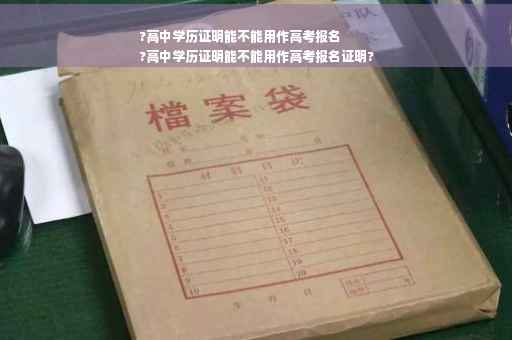 ?高中学历证明能不能用作高考报名
?高中学历证明能不能用作高考报名证明?
檔案袋
材料目次
1 11
2 12
3 13
4 14
5 15
6 16
7 17
8 18
9 19
10 20
年 月 日